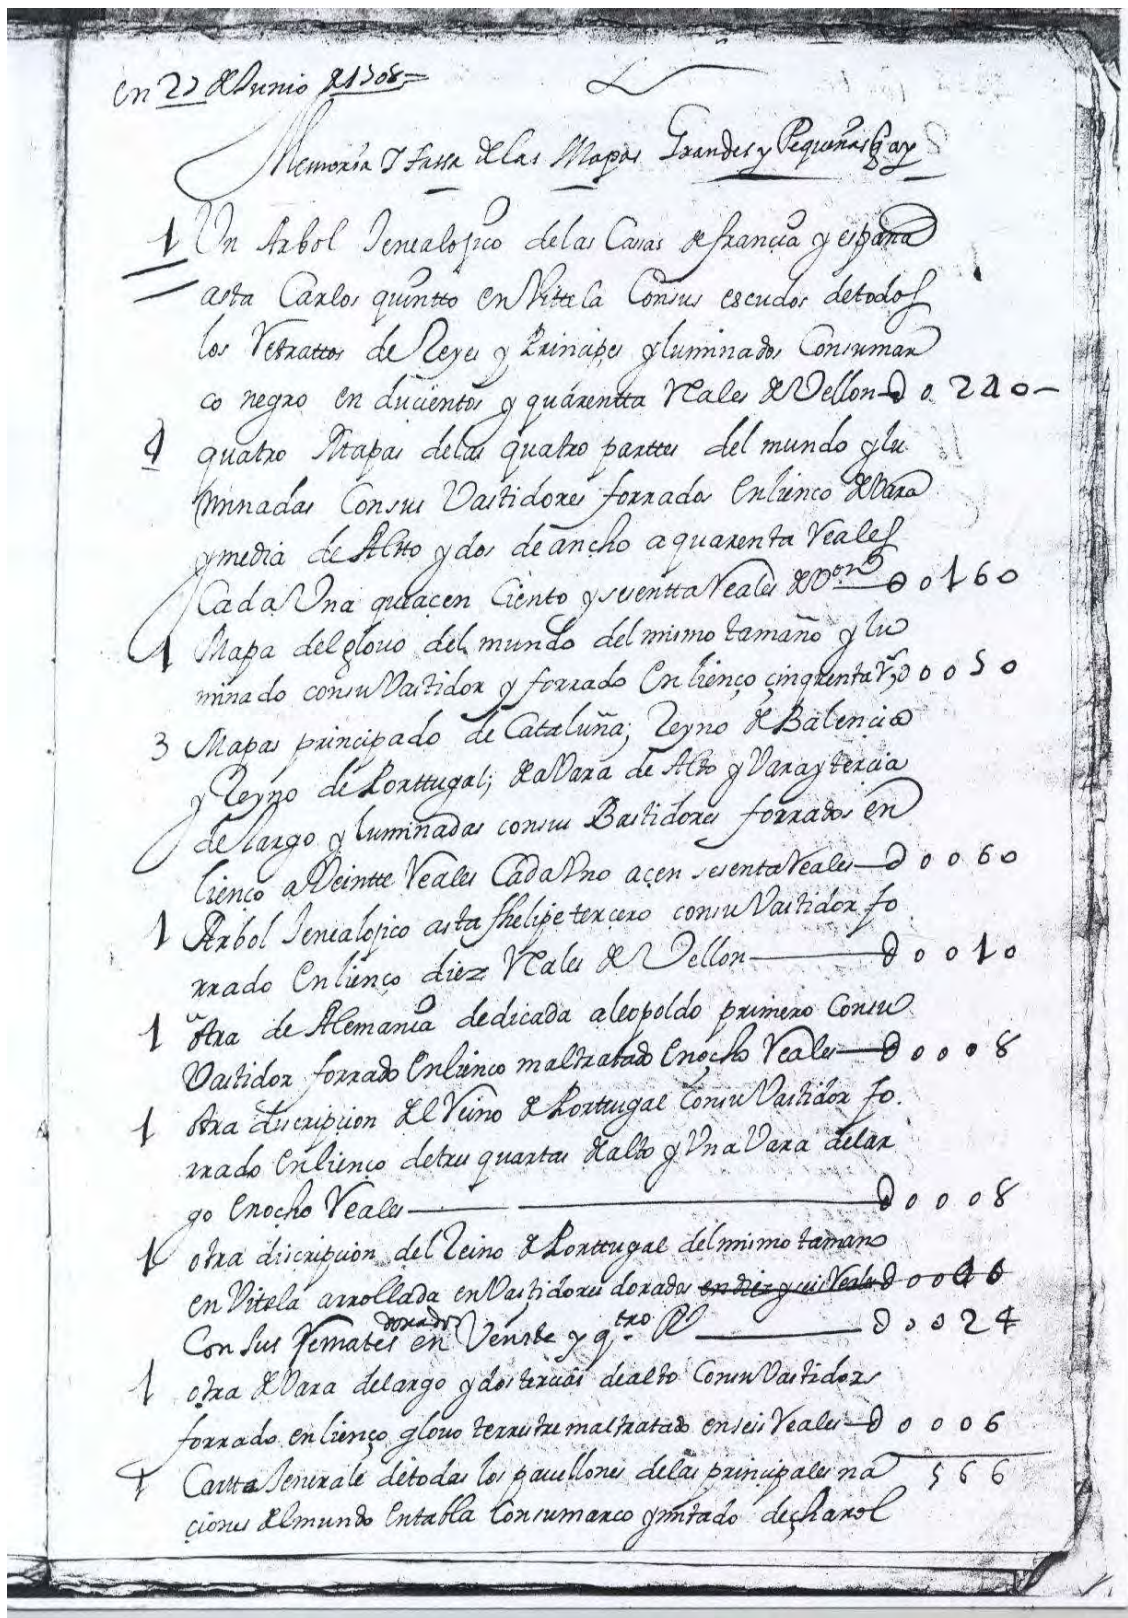 en 22 de Junio de 1708=
Memoria Y tassa de las Mapas Grandes y Pequeñas
1 Un Arbol Jenealojico delas Casas de francia y españa
asta Carlos quintto en Vittela Consus escudos detodos
los Retrattos de Reyes y Prinçipes yluminados Consumar
co negro en duçientos y quarentta Reales de Vellon D 0 240-
4 quatro Mapas delas quatro parttes del mundo ylu
minadas Consus Vastidores forrados Enlienço de Vara
y media de Altto y dos de ancho a quarenta Reales
Cada Una que açen Ciento y sesentta Reales de Von D 0160
1 Mapa del glovo del mundo del mismo tamaño ylu
minado consu Vastidor y forrado Enlienço çinquenta Rs D 0050
3 Mapas principado de Cataluña; Reyno de Balencia
y Reyno de Porttugal; de aVara de Alto y Vara y tercia
de largo yluminadas consus Bastidores forrados en
lienço a Veintte Reales Cada Uno açen sesenta Reales D 0060
1 Arbol Jenealojico asta fhelipe tercero consu Vastidor fo
rrado Enlienço diez Reales de Vellon D 0010
1 otra de Alemania dedicada aleopoldo primero Consu
Vastidor forrado Enlienço maltratado Enocho Reales D 0008
1 otra discripcion del Reino de Porttugal Consu Vastidor fo.
rrado Enlienço detres quartas de alto y Una Vara delar
go Enocho Reales D 0008
1 otra discripcion del Reino de Porttugal delmismo tamano
en Vitela arrollada en Vastidores dorados en diez y seis Reales D 0016
Con sus Remates dorados en Veinte y qtro Rl D 0024
1 otra de Vara delargo y dos tercias dealto Consu Vastidor
forrado enlienço glovo terrestre maltratado enseis Reales D 0006
566
1 Cartta Jenerale de todas los pavellones delas principales na
çiones del mundo Entabla Consumarco ymitado decharol